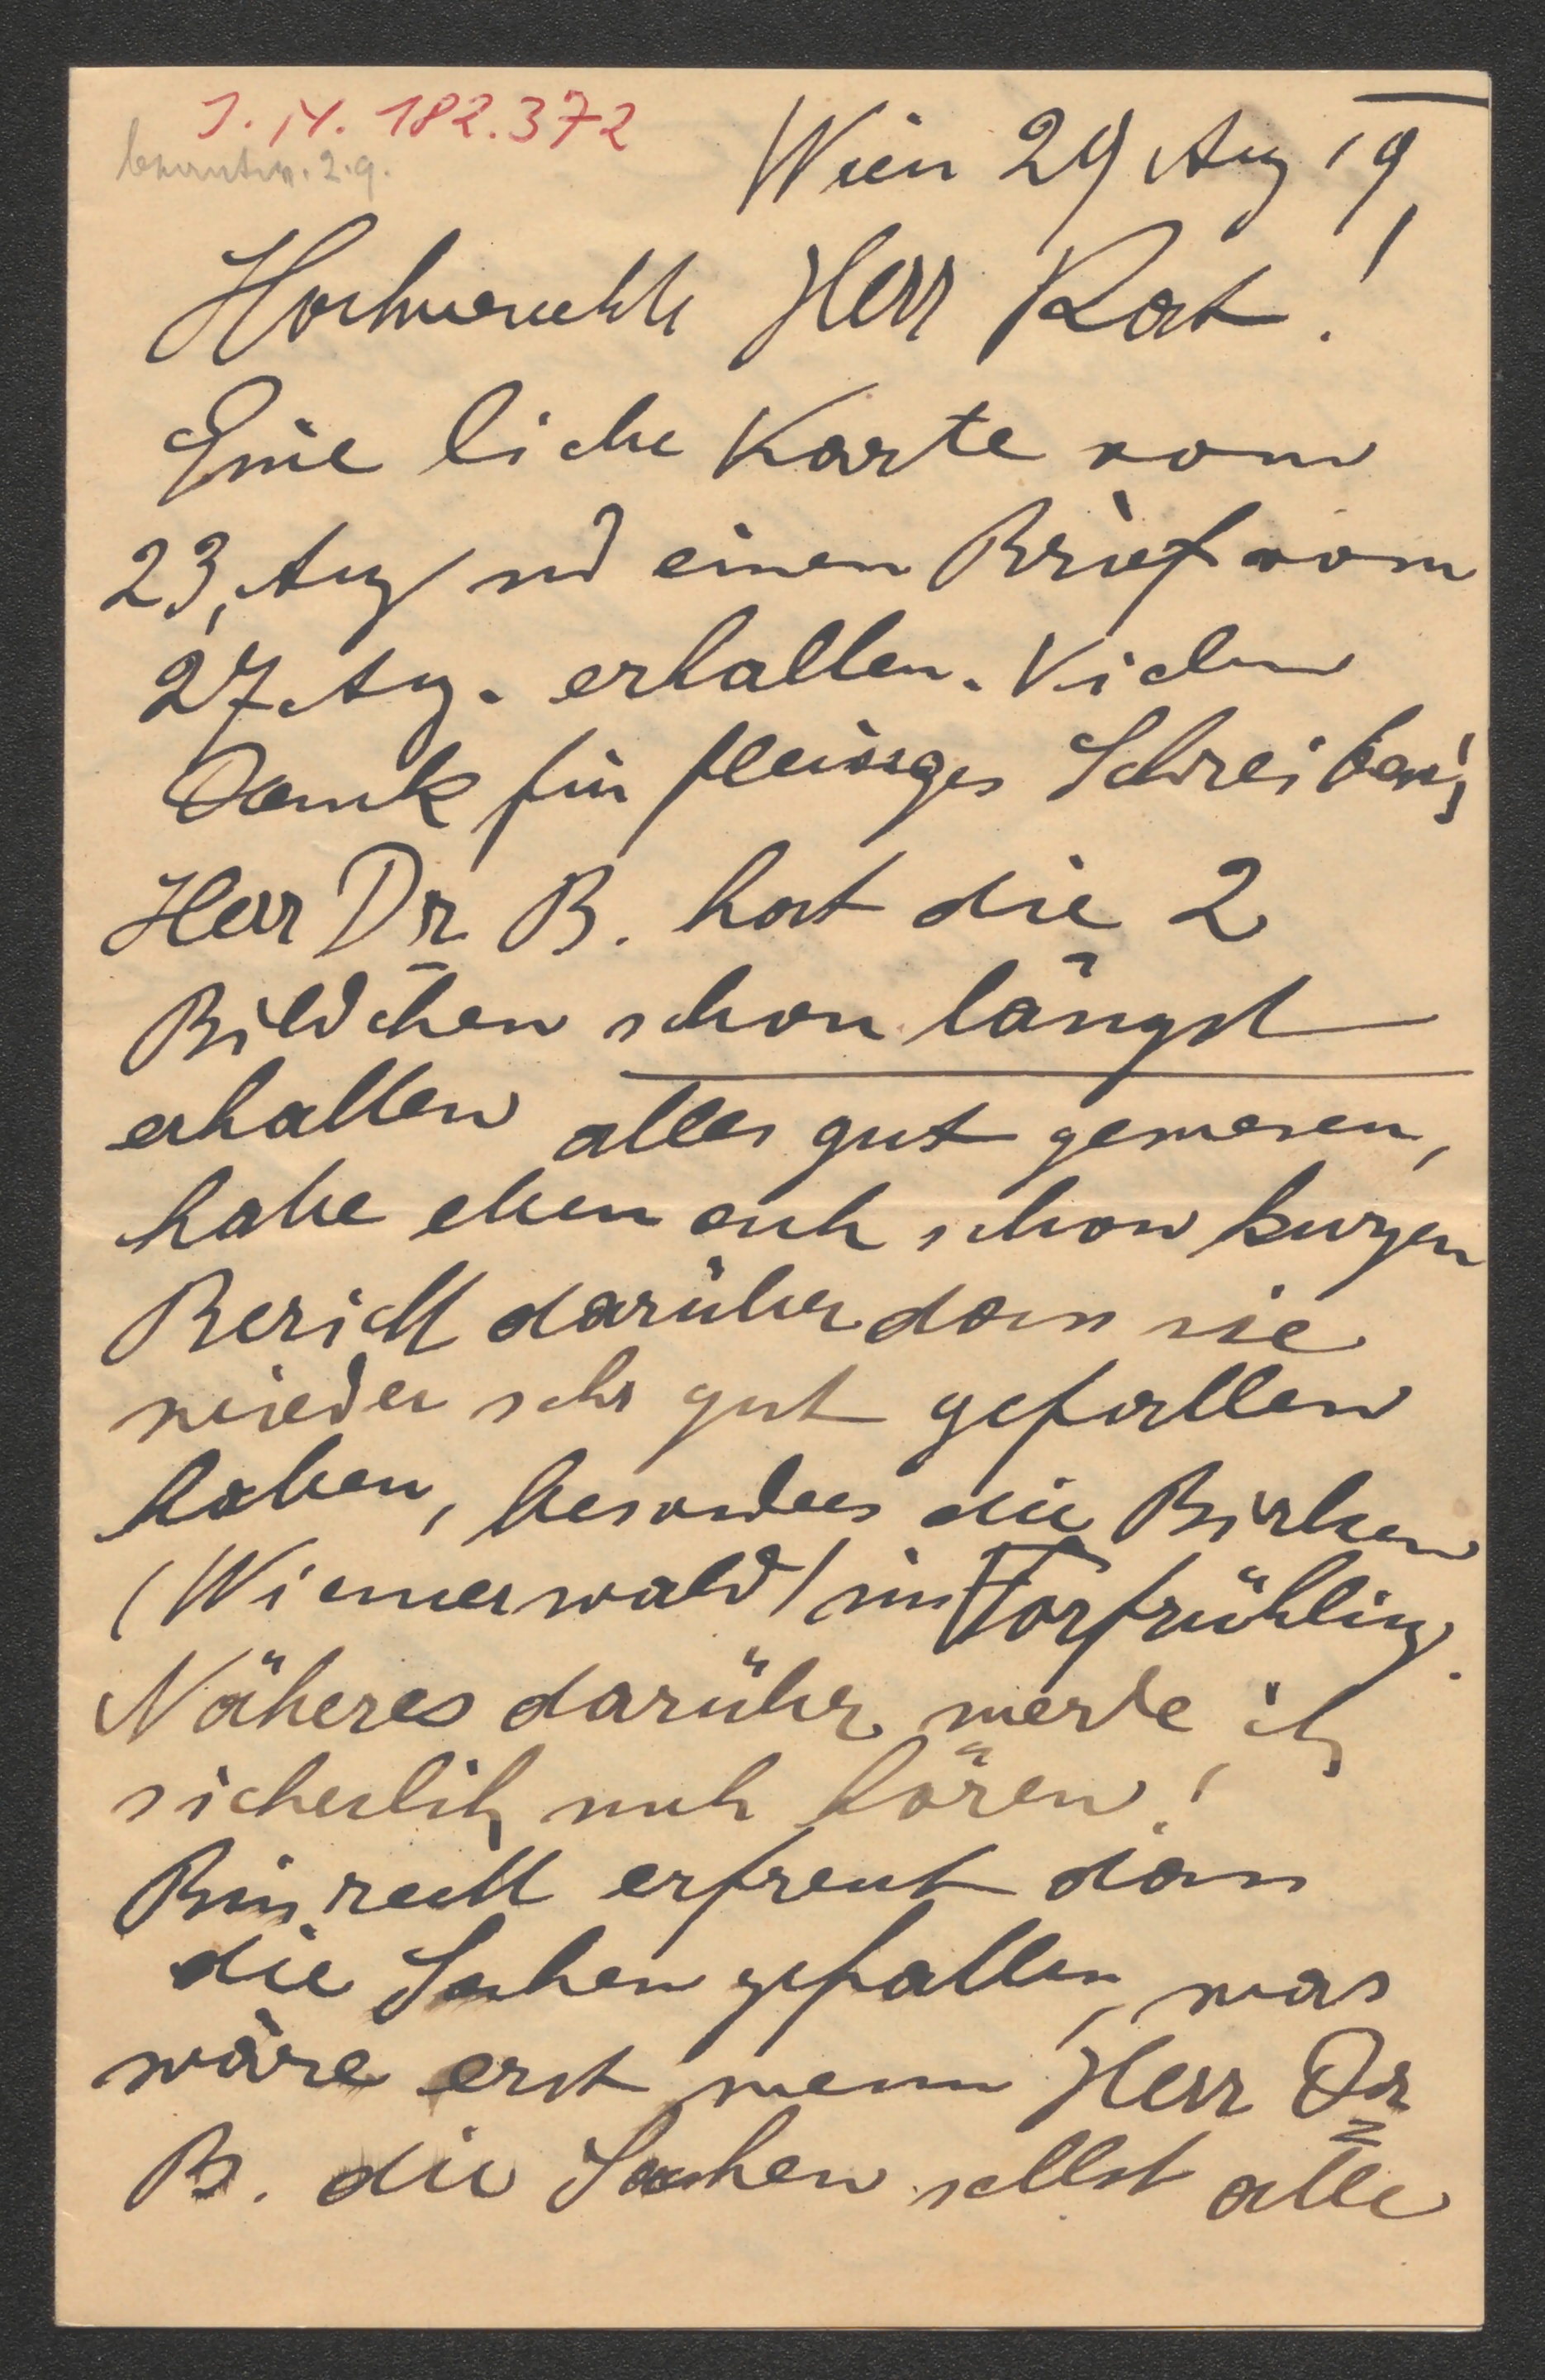 J. N. 182.372
beantw. 2.9.
Wien 29 Aug 19
Hochverehrter Herr Rat!
Eine liebe Karte vom
23. Aug und einen Brief vom
27. Aug. erhalten. Vielen
Dank für fleissges Schreiben!
Herr Dr B. hat die 2
Bildchen schon längst
erhalten alles gut gewesen,
habe eben auch schon kurzen
Bericht darüber dass sie
wieder sehr gut gefallen
haben, besonders die Birken
(Wienerwald) im Vorfrühling.
Näheres darüber werde ich
sicherlich noch hören!
Bin recht erfreut dass
die Sachen gefallen, was
wäre erst wenn Herr Dr
B. die Sachen selbst alle